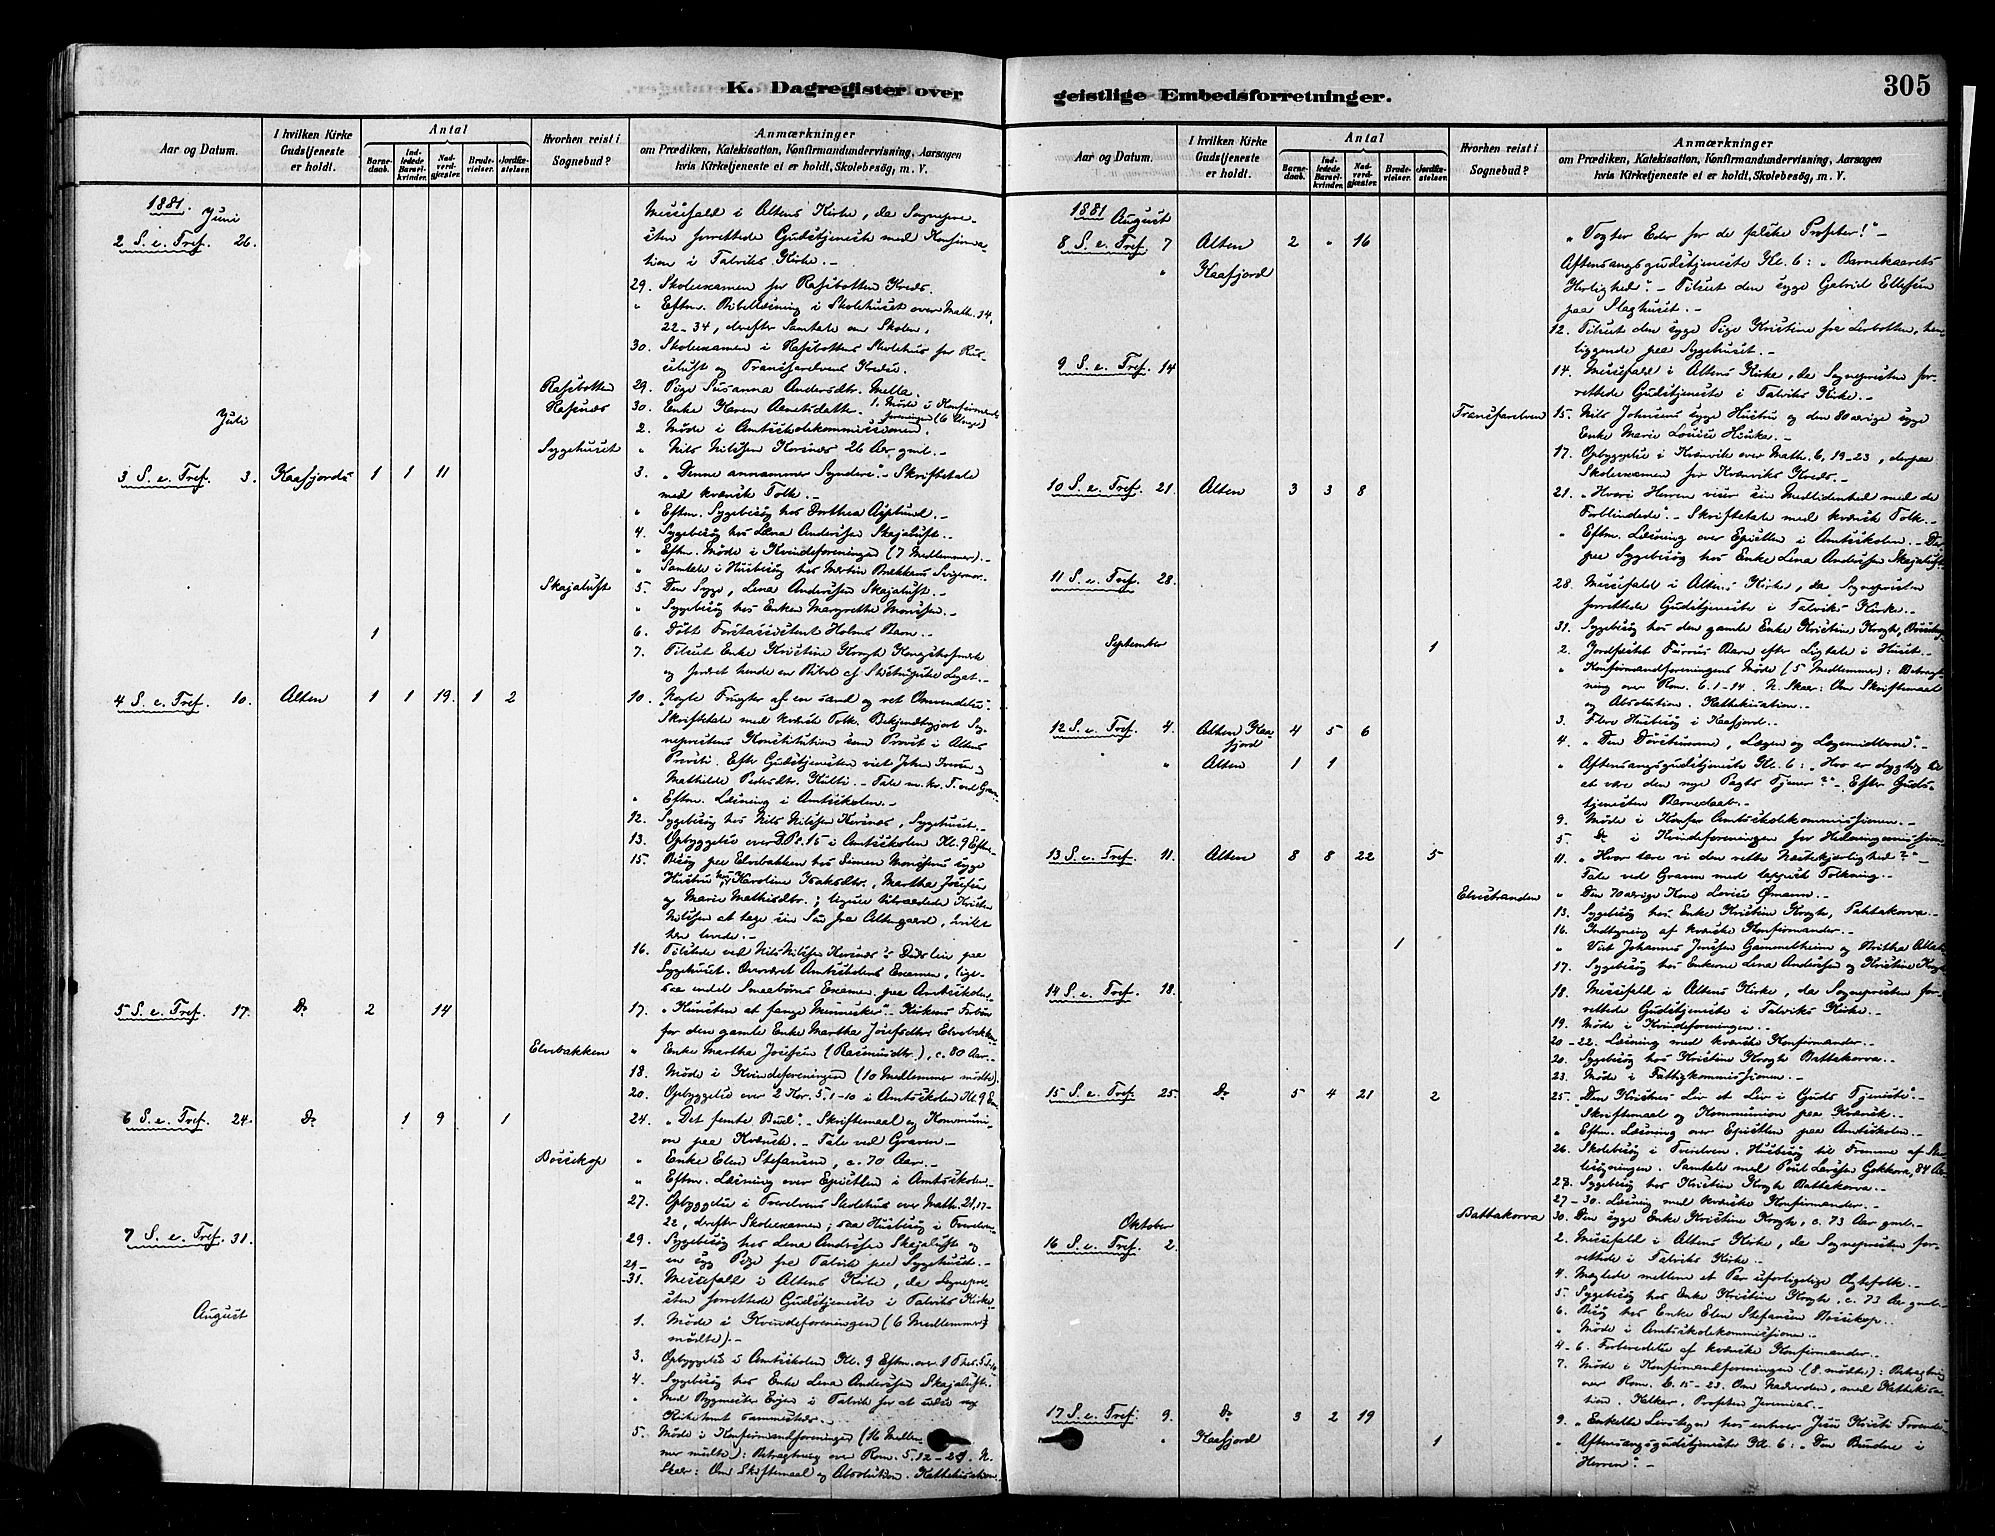 K. Dagregister over
Aar og Datum.
I hvilken Kirke Gudstjeneste er holdt.
Antal
Barnedaab.
Indledede Barselkvinder.
Nadverdgjæster.
Brudevielser.
Jordfæstelser.
Hvorhen reist i Sognebud?
Anmærkninger
om Prædiken, Katekisation, Konfirmandundervisning, Aarsagen
hvis Kirketjeneste ei er holdt, Skolebesøg, m. V.
1881. Juni
2 S. e. Tref. 26. Messefald i Altens Kirke, da Sognepre-
sten forrettede Gudstjeneste med Konfirma-
tion i Talviks Kirke.-
29. Skoleexamen for Rafsbotten Kreds.
" Eftm. Bibellæsning i Skolehuset over Math. 14,
22-34, derefter Samtale om Skolen.
30. Skoleexamen i Rafsbottens Skolehus for
og Transfarelvens Kreds.
Rafsbotten 29. Pige Susanna Andersdtr. Mella.
30. Enke Karen
Juli 2. Møde i Amtsskolekommissionen.
Sygehuset " Nils Nilssen Kornæs 26 Aar gml.-
3 S. e. Tref. 3. Kaafjords 1 1 11 3. "Denne annammer Syndere".- Skriftetale
med kvænsk Tolk.-
" Eftm. Sygebesøg hos Dorthea
4. Sygebesøg hos Lena Anderssen Skajaluft.-
" Eftm. Møde i Kvindeforeningen (7 Medlemmer).-
" Samtale i Husbesøg hos Martin Bækkens
Skajaluft 5. Den Syge, Lena Anderssen Skajaluft.-
" Sygebesøg hos Enken Margrethe Monssen.-
1 6. Døbt Forstassistent Holms Barn.-
7. Tilset Enke Kristine Krogh
og foræret hende en Bibel
4 S. e. Tref. 10. Alten 1 1 19 1 2 10. Nogle Frugter af en sand og ret Omvendelse.
Skriftetale med kvænsk Tolk. Bekjendtgjort Sog-
neprestens Konstitution som Provst i Altens
Provsti. Efter Gudstjenesten viet John
Mathilde Pedersdtr. - Tale m. kv. T. ved Graven
" Eftm. Læsning i Amtsskolen.-
12. Sygebesøg hos Nils Nilssen Kornæs, Sygehuset.-
13. Opbyggelse over D. Ps. 15 i Amtsskolen Kl. 9 Eftm.
15. Besøg paa Elvebakken hos Simon Monssens syge
Hustru, hos Karoline Isaksdtr., Martha Josefsen
og Marie Mathisdtr.; ligesaa tilraadede Kristen
Nilssen at tage sin Søn fra Altengaard, hvilket
han lovede.-
16. Tilstede ved Nils Nilssen Kornæs's Dødsleie paa
Sygehuset. Overværet Amtsskolens Examen, lige-
saa endel Smaabørns Examen paa Amtsskolen
5 S. e. Tref. 17. Do 2 14 17. "Kunsten at fange Mennesker". Kirkens Forbøn
for den gamle Enke Martha Josefsdtr. Elvebakken
Elvebakken " Enke Martha Josefsen (Rasmusdtr.), c. 80 Aar.-
18. Møde i Kvindeforeningen (10 Medlemmer mødte).
20. Opbyggelse over 2 Kor. 5. 1-10 i Amtsskolen Kl. 9 Em.
6 S. e. Tref. 24. Do 1 9 1 24. "Det femte Bud".- Skriftemaal og Kommuni-
on paa Kvænsk.- Tale ved Graven.-
Bossekop " Enke Elen Stefansen, c. 70 Aar.-
" Eftm. Læsning over Epistlen i Amtsskolen.-
27. Opbyggelse i Tverelvens Skolehus over Math. 21, 17-
22, derefter Skoleexamen; saa Husbesøg i Tverelven.
7 S. e. Tref. 31. 29. Sygebesøg hos Lena Anderssen Skajaluft og
29- en syg Pige fra Talvik paa Sygehuset.-
-31. Messefald i Altens Kirke, da Sognepre-
sten forrettede Gudstjeneste i Talviks Kirke.
August
1. Møde i Kvindeforeningen (6 Medlemmer
mødte).-
3. Opbyggelse i Amtsskolen Kl. 9 Eftm. over 1 Thes. 5
4. Sygebesøg hos Enke Lena Anderssen Skajaluft.
" Med Bygmester i Talvik for at
Kirketomt sammesteds.-
5. Møde i Konfirmandforeningen (16 Medlem-
mer mødte): Betragtning over Rom. 5. 12-21. N.
Skaar: Om Skriftemaal og Absolution. Kattekisation.
geistlige Embedsforretninger.
305
Aar og Datum.
I hvilken Kirke Gudstjeneste er holdt.
Antal
Barnedaab.
Indledede Barselkvinder.
Nadverdgjæster.
Brudevielser.
Jordfæstelser.
Hvorhen reist i Sognebud?
Anmærkninger
om Prædiken, Katekisation, Konfirmandundervisning, Aarsagen
hvis Kirketjeneste ei er holdt, Skolebesøg, m. V.
1881 August
8 S. e. Tref. 7 Alten 2 " 16 "Vogter Eder for de falske Profeter!"-
" Kaafjord Aftensangsgudstjeneste Kl. 6: "Barnekaarets
Herlighed".- Tilset den syge Gabriel Ellefsen
paa Slaghuset.-
12. Tilset den syge Pige Kristine fra Leirbotten, hen-
liggende paa Sygehuset.-
9 S. e. Tref. 14 14. Messefald i Altens Kirke, da Sognepresten for-
rettede Gudstjeneste i Talviks Kirke.-
Transfarelven 15. Nils Johnsens syge Hustru og den 80aarige syge
Enke Marie Louise
17. Opbyggelse i Kvænvik over Math. 6, 19-23, derpaa
Skoleexamen for Kvænviks Kreds.-
10 S. e. Tref. 21. Alten 3 3 8 21. "Hvori Herren viser sin Medlidenhed med de
Forblindede".- Skriftetale med kvænsk Tolk.-
" Eftm. Læsning over Epistlen i Amtsskolen.- Der-
paa Sygebesøg hos Enke Lena Anderssen Skajaluft.
11 S. e. Tref. 28. 28. Messefald i Altens Kirke, da Sognepresten
forrettede Gudstjeneste i Talviks Kirke.-
31. Sygebesøg hos den gamle Enke Kristine Krogh,
September 1 2. Jordfæstet Barn efter Ligtale i Huset.-
" Konfirmandforeningens Møde (5 Medlemmer): Betragt-
ning over Rom. 6. 1-14. N. Skaar: Om Skriftemaal
og Absolution. Kattekisation.-
3. Flere Husbesøg i Kaafjord.-
12 S. e. Tref. 4. Alten Kaafjord 4 5 6 4. "Den Døvstumme, Lægen og Lægemidlerne".-
" Alten 1 1 " Aftensangsgudstjeneste Kl. 6: "Hvo er dygtig til
at være den nye Pagts Tjener?"- Efter Guds-
tjenesten Barnedaab.-
9. Møde i Amtsskolekommissionen.-
5. Do i Kvindeforeningen for Hedningemissionen
13 S. e. Tref. 11. Alten 8 8 22 5 11. "Hvor lære vi den rette Næstekjærlighed?"-
Tale ved Graven med lappisk Tolkning.-
Elvestranden " Den 70aarige Kone Lovise Ømann.-
13. Sygebesøg hos Enke Kristine Krogh, Battakorva.-
16. Indtegning af kvænske Konfirmander.-
1 " Viet Johannes Jonssen Gammelheim og Britha
17. Sygebesøg hos Enkerne Lena Anderssen og Kristine Krogh
14 S. e. Tref. 18. 18. Messefald i Altens Kirke, da Sognepresten for-
rettede Gudstjeneste i Talviks Kirke.-
19. Møde i Kvindeforeningen.-
20-22. Læsning med kvænske Konfirmander.-
20. Sygebesøg hos Kristine Krogh Battakorva.-
23. Møde i Fattigkommissionen.-
15 S. e. Tref. 25. Do 5 4 21 2 25. "Den Kristnes Liv et Liv i Guds Tjeneste".-
Skriftemaal og Kommunion paa Kvænsk.-
" Eftm. Læsning over Epistlen paa Amtsskolen.-
26. Skolebesøg i Tverelven. Husbesøg til Fremme af Sko-
lesøgningen. Samtale med Poul Larssen Gokkora, 84 Aar
27. Sygebesøg hos Kristine Krogh Battakorva.-
27-30. Læsning med kvænske Konfirmander.-
Battakorva 30. Den syge Enke Kristine Krogh, c. 73 Aar gml.-
Oktober
16 S. e. Tref. 2. 2. Messefald i Altens Kirke, da Sognepresten for-
rettede i Talviks Kirke.-
4. Mæglede mellem et Par uforligelige Ægtefolk.-
5. Sygebesøg hos Enke Kristine Krogh, c. 73 Aar gml.-
6. Besøg hos Enke Elen Stefansen Bossekop.-
" Møde i Amtsskolekommissionen.-
4-6. Forberedelse af kvænske Konfirmander.-
7. Møde i Konfirmandforeningen (8 mødte): Betragtning
over Rom. 6. 15-23. Om Nadverden, med Kattekisa-
tion. Kalkar, Profeten Jeremias.-
17 S. e. Tref. 9. Do 3 2 19 9. "Enkelte hos enhver Jesu Kristi
" Kaafjord 1 " Aftensangsgudstjeneste Kl. 6: "Den Bundne i
Herren".-